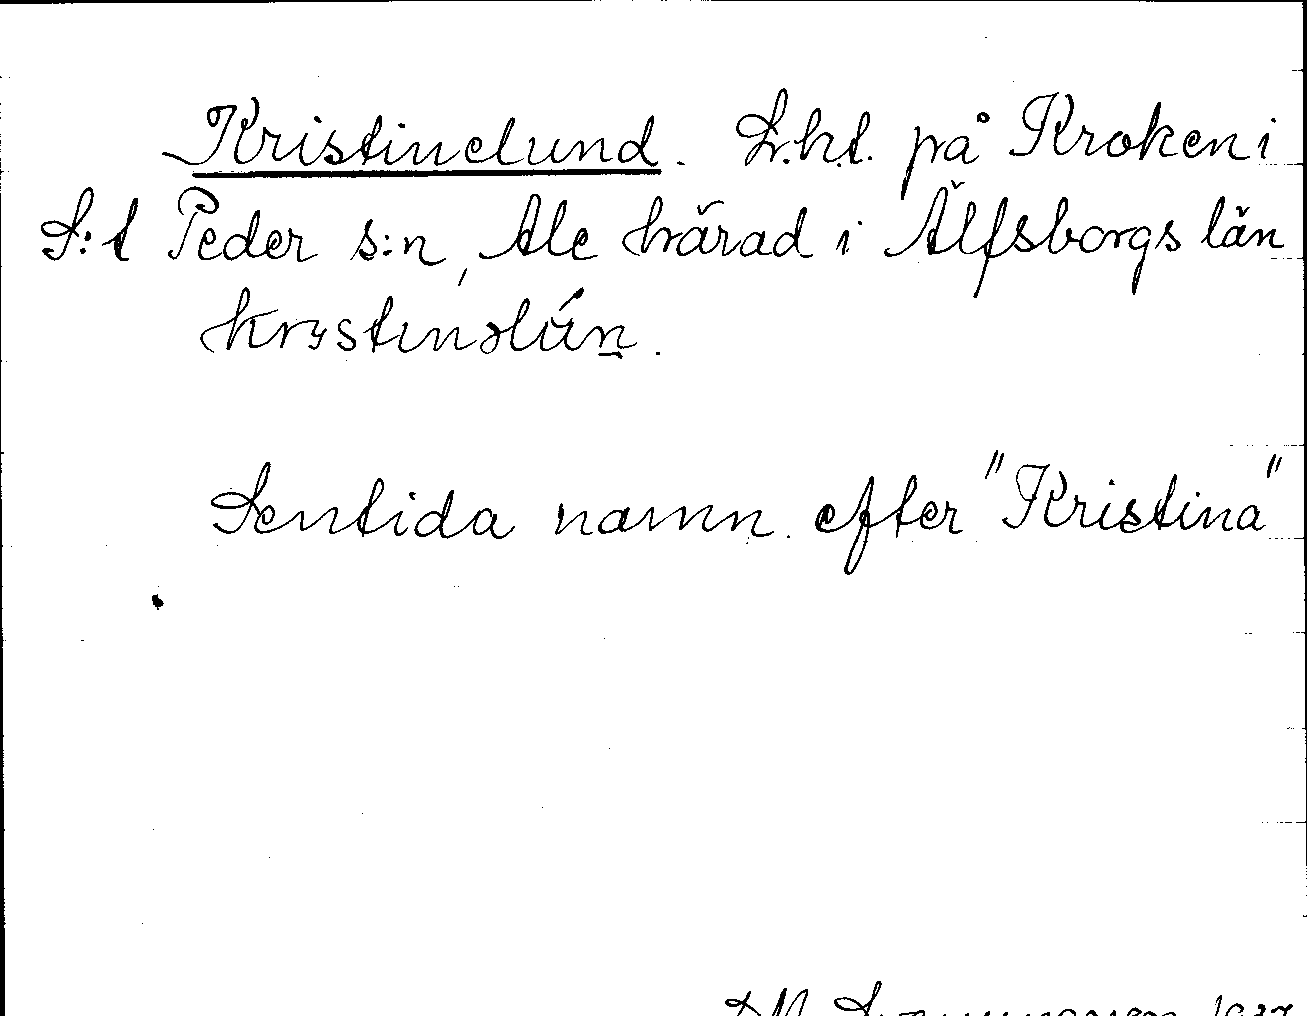 Kristinelund. L.h.t. på Kroken i
S:t Peder s:n, Ale härad i Älfsborgs län
krıstinəlún̲.
Sentida namn efter "Kristina"
1937